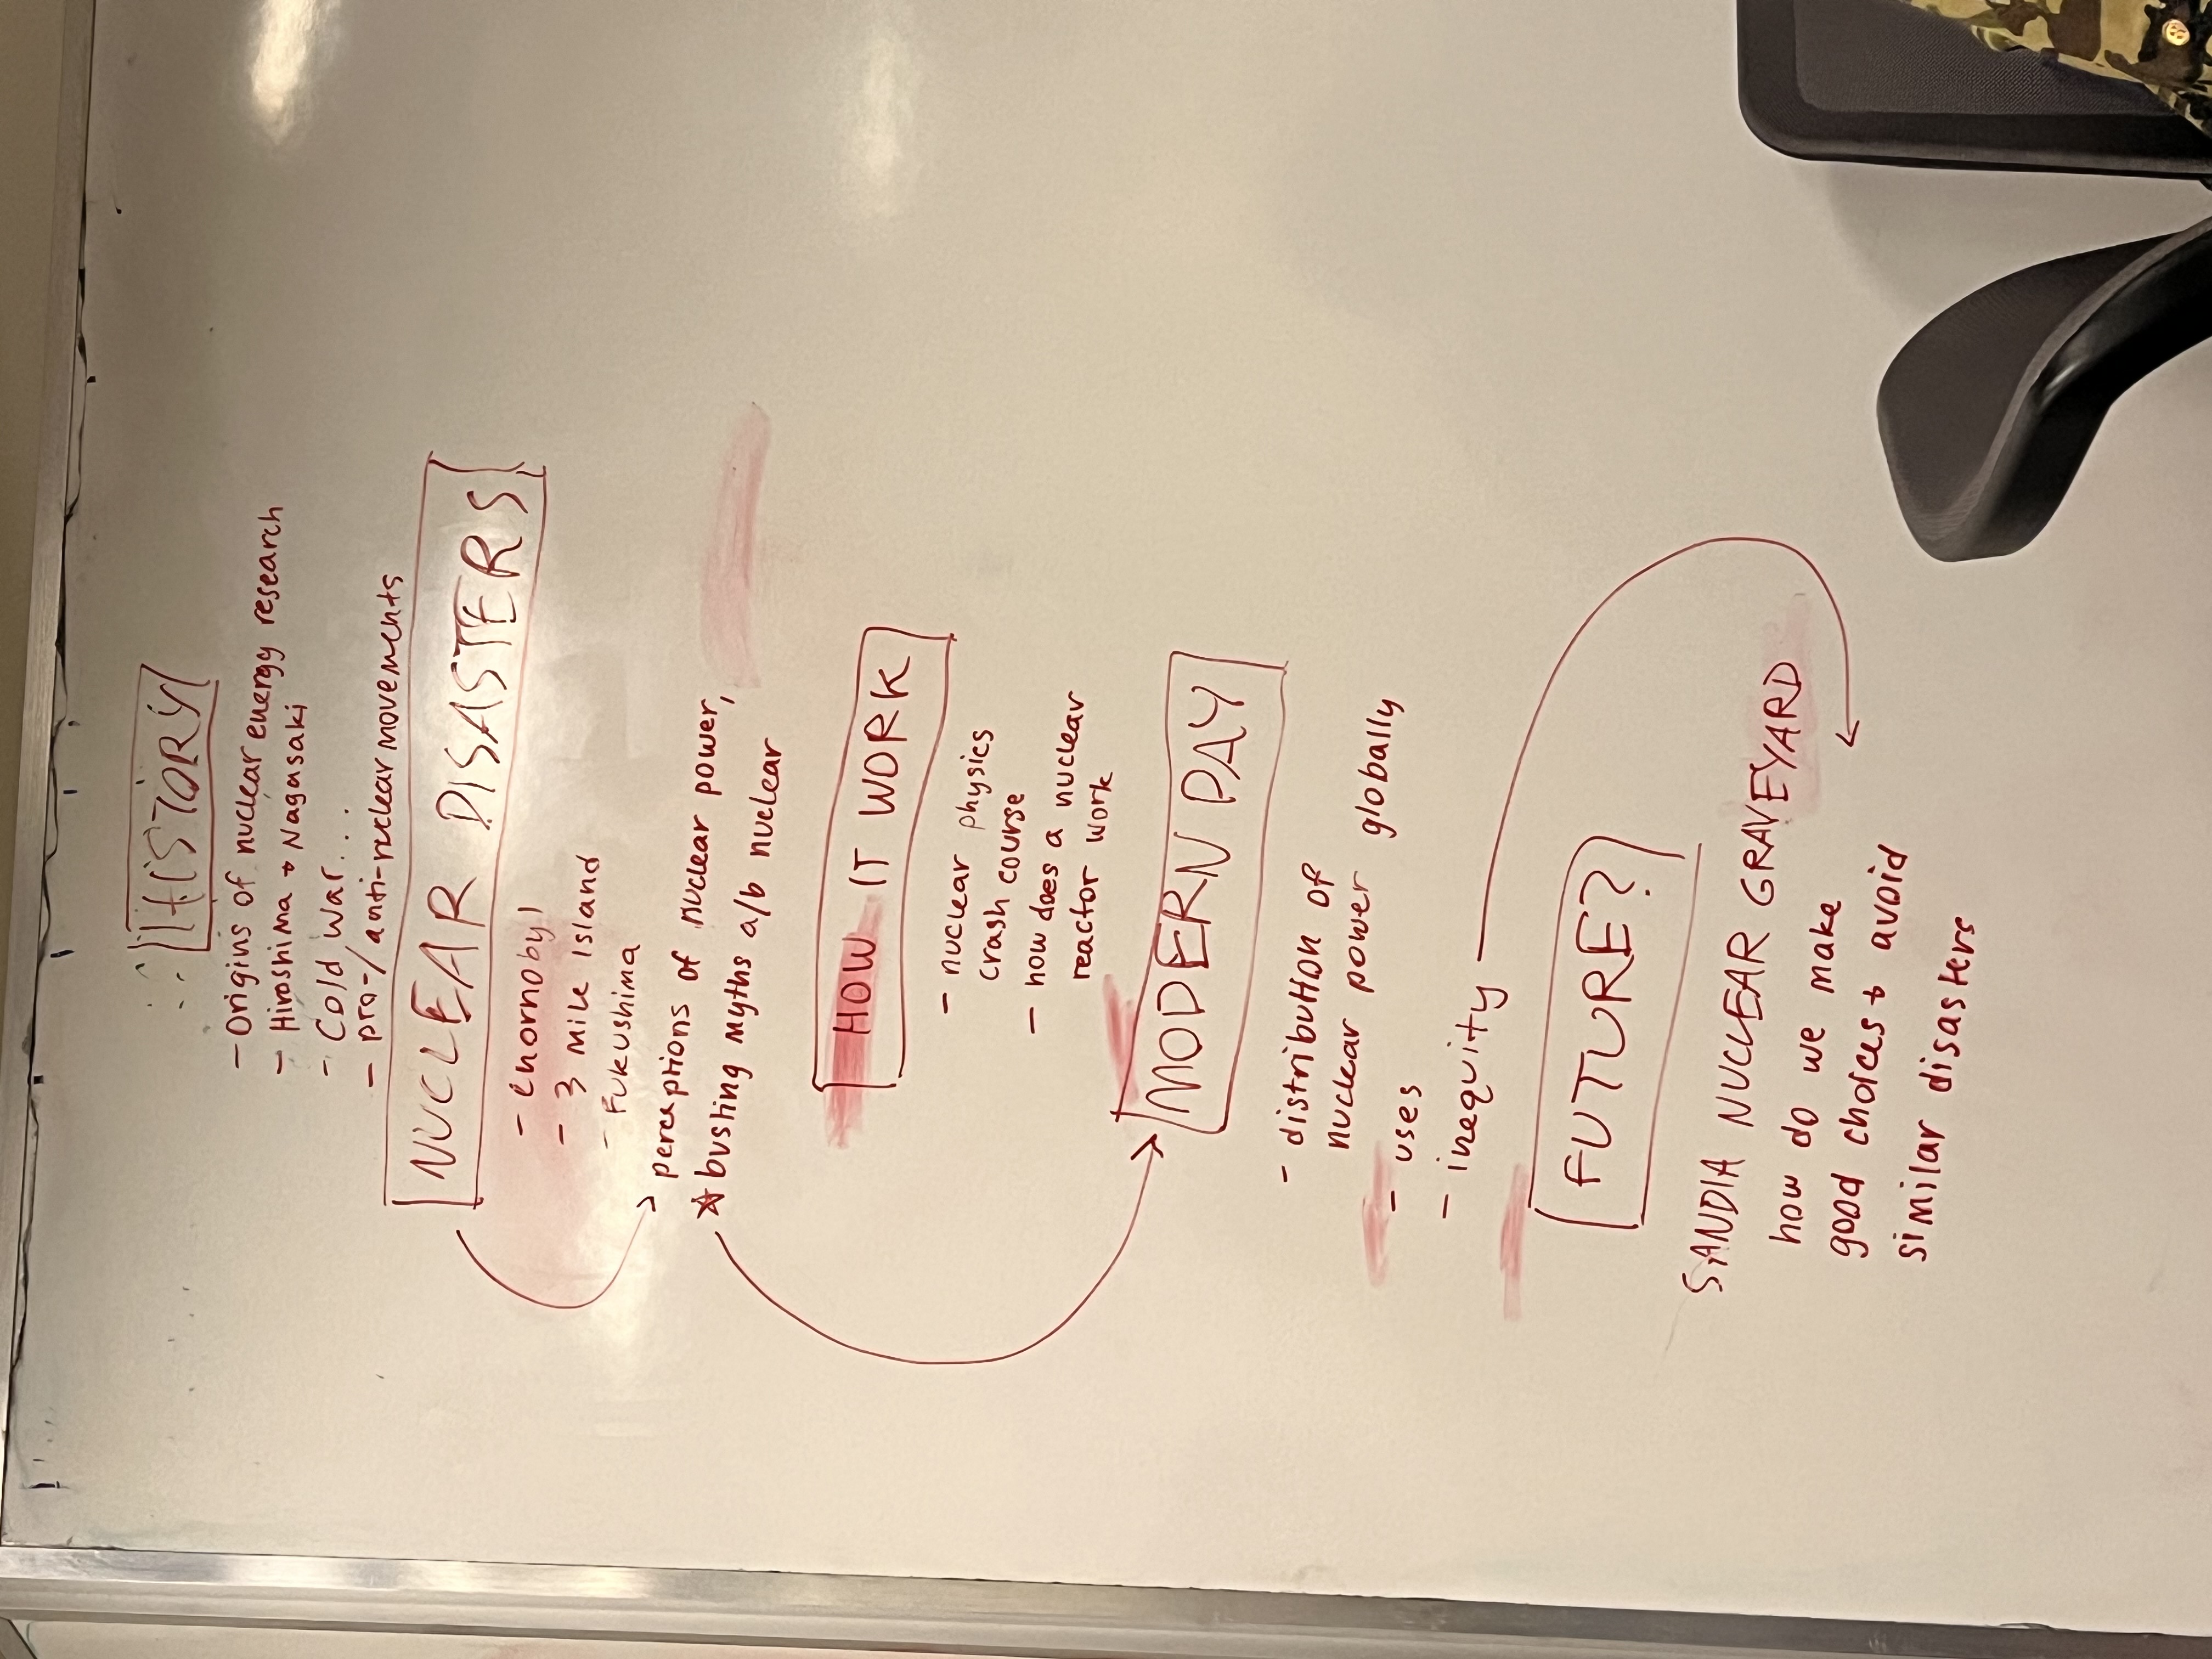 HISTORY
- Origins of nuclear energy research
- Hiroshima + Nagasaki
- Cold War...
- pro-/anti-nuclear movements
NUCLEAR DISASTERS
- Chornobyl
- 3 Mile Island
- Fukushima
perceptions of nuclear power,
☆ busting myths a/b nuclear
HOW IT WORK
- nuclear physics
crash course
- how does a nuclear
reactor work
MODERN DAY
- distribution of
nuclear power globally
- uses
- inequity
FUTURE?
SANDIA NUCLEAR GRAVEYARD
how do we make
good choices + avoid
similar disasters